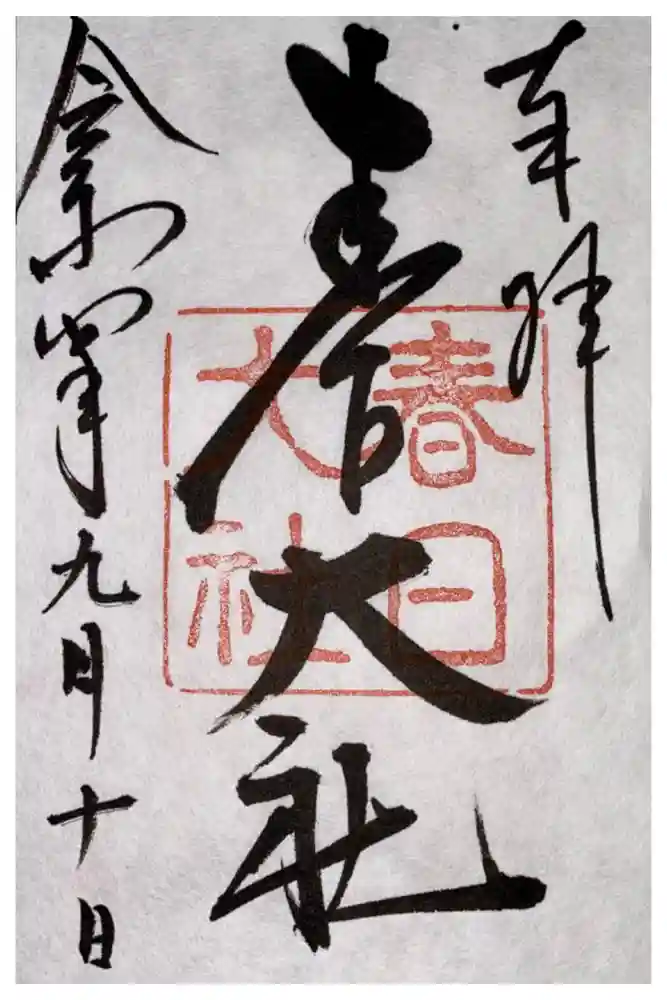 奉拝
春日大社
令和年九月十日
春日
大社